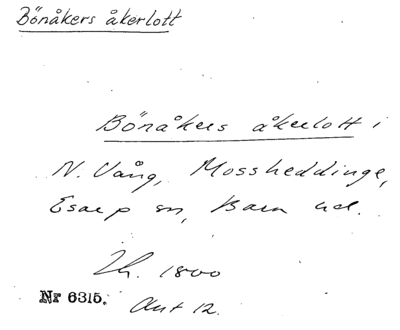 Bönåkers åkerlott
Bönåkers åkerlott i
N. Vång, Mossheddinge,
Esarp sn, Bara hd.
Lh. 1800
Nr 6315. Akt 12.